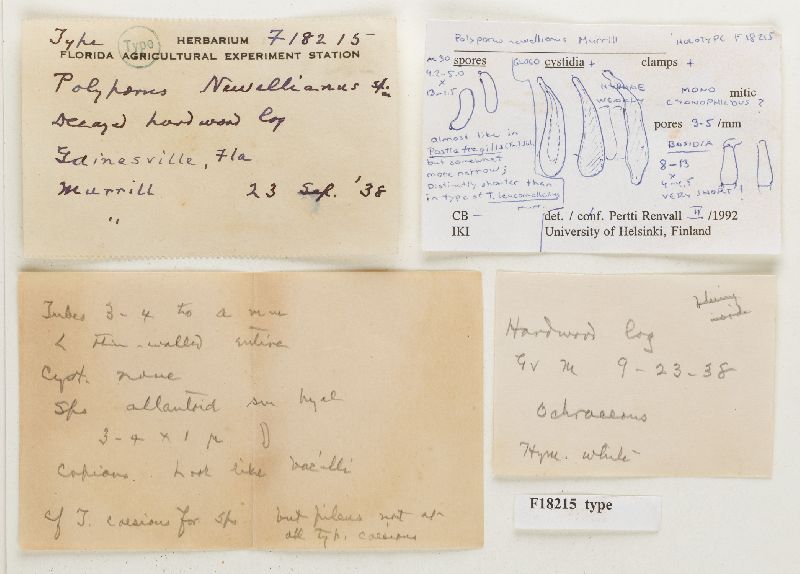 Type Type HERBARIUM F18215
FLORIDA AGRICULTURAL EXPERIMENT STATION
Polyporus Newellianus sp.
Decayed hardwood log
Gainesville, Fla
Murrill 23 Sep. '38
"
Polyporus newellianus Murrill HOLOTYPE F18215
n=30 spores GLOEO cystidia + clamps +
4.2-5.0
x
1.3-1.5
HYPHAE
WEAKLY
MONO mitic
CYANOPHILOUS ?
pores 3-5 /mm
almost like in
Postia fragilis
but somewhat
more narrow;
Distinctly shorter than
in type of T. leucomallellus
BASIDIA
8-13
x
4-4.5
VERY SHORT!
CB - det. / conf. Pertti Renvall II /1992
IKI University of Helsinki, Finland
Tubes 3-4 to a mm
& thin-walled entire
Cyst. none
Sps allantoid sm hyal
3-4 x 1 µ
Copious. Look like bacilli
cf T. caesius for sps but pileus not at
all typ. caesius
Hardwood log
Gv M 9-23-38
Ochraceous
Hym. white
F18215 type